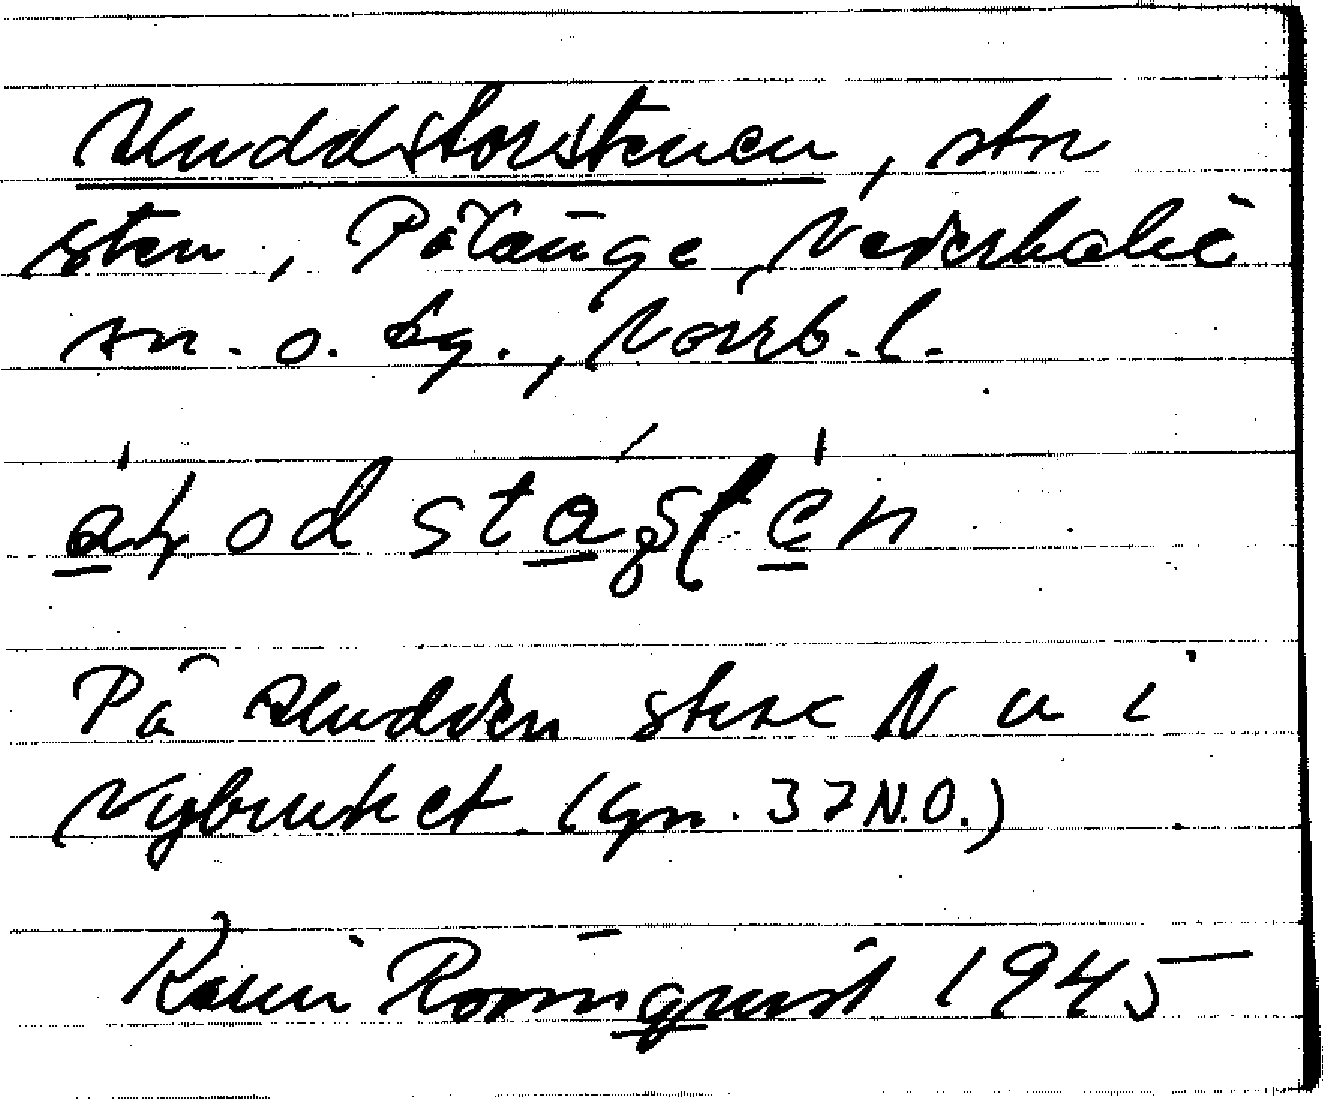 Uddstorstenen, stn
sten, Pålänge, Nederkalix
sn. o. tg., Norrb. l.
På Udden strax N u i
Nybruket. (Gn. 37 N.O.)
Karin Rönnqvist 1945